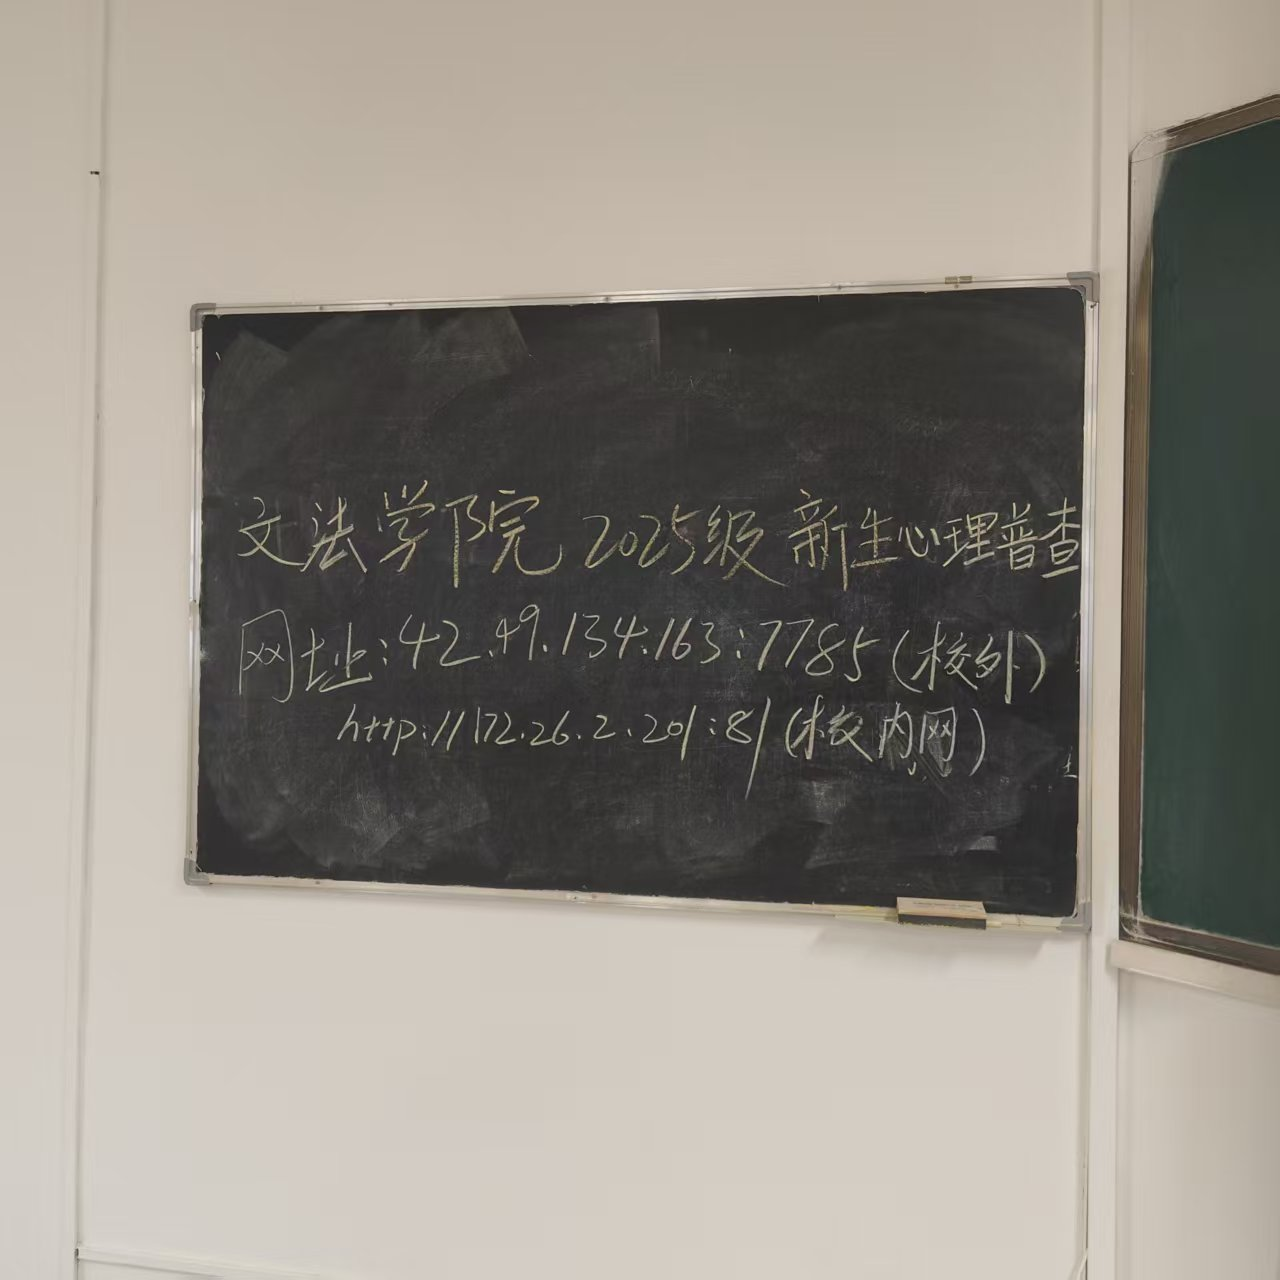 文法学院 2025级 新生心理普查
网址:42.49.134.163:7785(校外)
http://172.26.2.201:81(校内网)